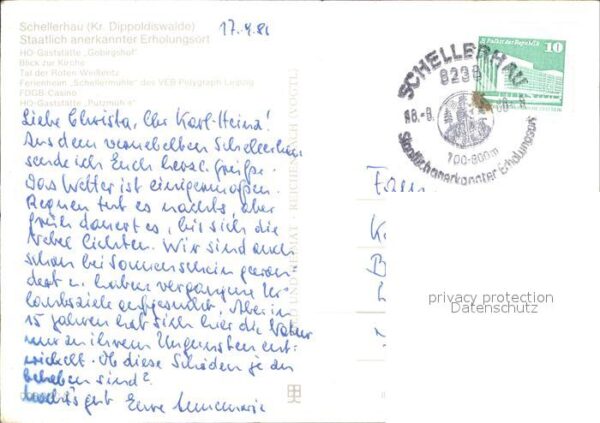 Schellerhau (Kr. Dippoldiswalde)
Staatlich anerkannter Erholungsort
HO-Gaststätte „Gebirgshof"
Blick zur Kirche
Tal der Roten Weißeritz
Ferienheim „Schellermühle" des VEB Polygraph Leipzig
FDGB-Casino
HO-Gaststätte „Putzmüh'e"
17.9.81
Liebe Christa, lbr Karl-Heinz!
Aus dem vernebelten Schellerhau
sende ich Euch herzl. Grüße.
Das Wetter ist einigermaßen.
Regnen tut es nachts, aber
früh dauert es, bis sich die
Nebel lichten. Wir sind auch
schon bei Sonnenschein gewan-
dert u. haben vergangene Ur-
laubsziele aufgesucht. Aber in
15 Jahren hat sich hier die Natur
nur zu ihrem Ungunsten ent-
wickelt. Ob diese Schäden je zu
beheben sind?
Macht's gut Eure Annemarie
BILD UND HEIMAT REICHENBACH (VOGTL)
Palast der Republik
10
SCHELLERHAU
8239
700-800m
Staatlich anerkannter Erholungsort
Fam.
privacy protection
Datenschutz